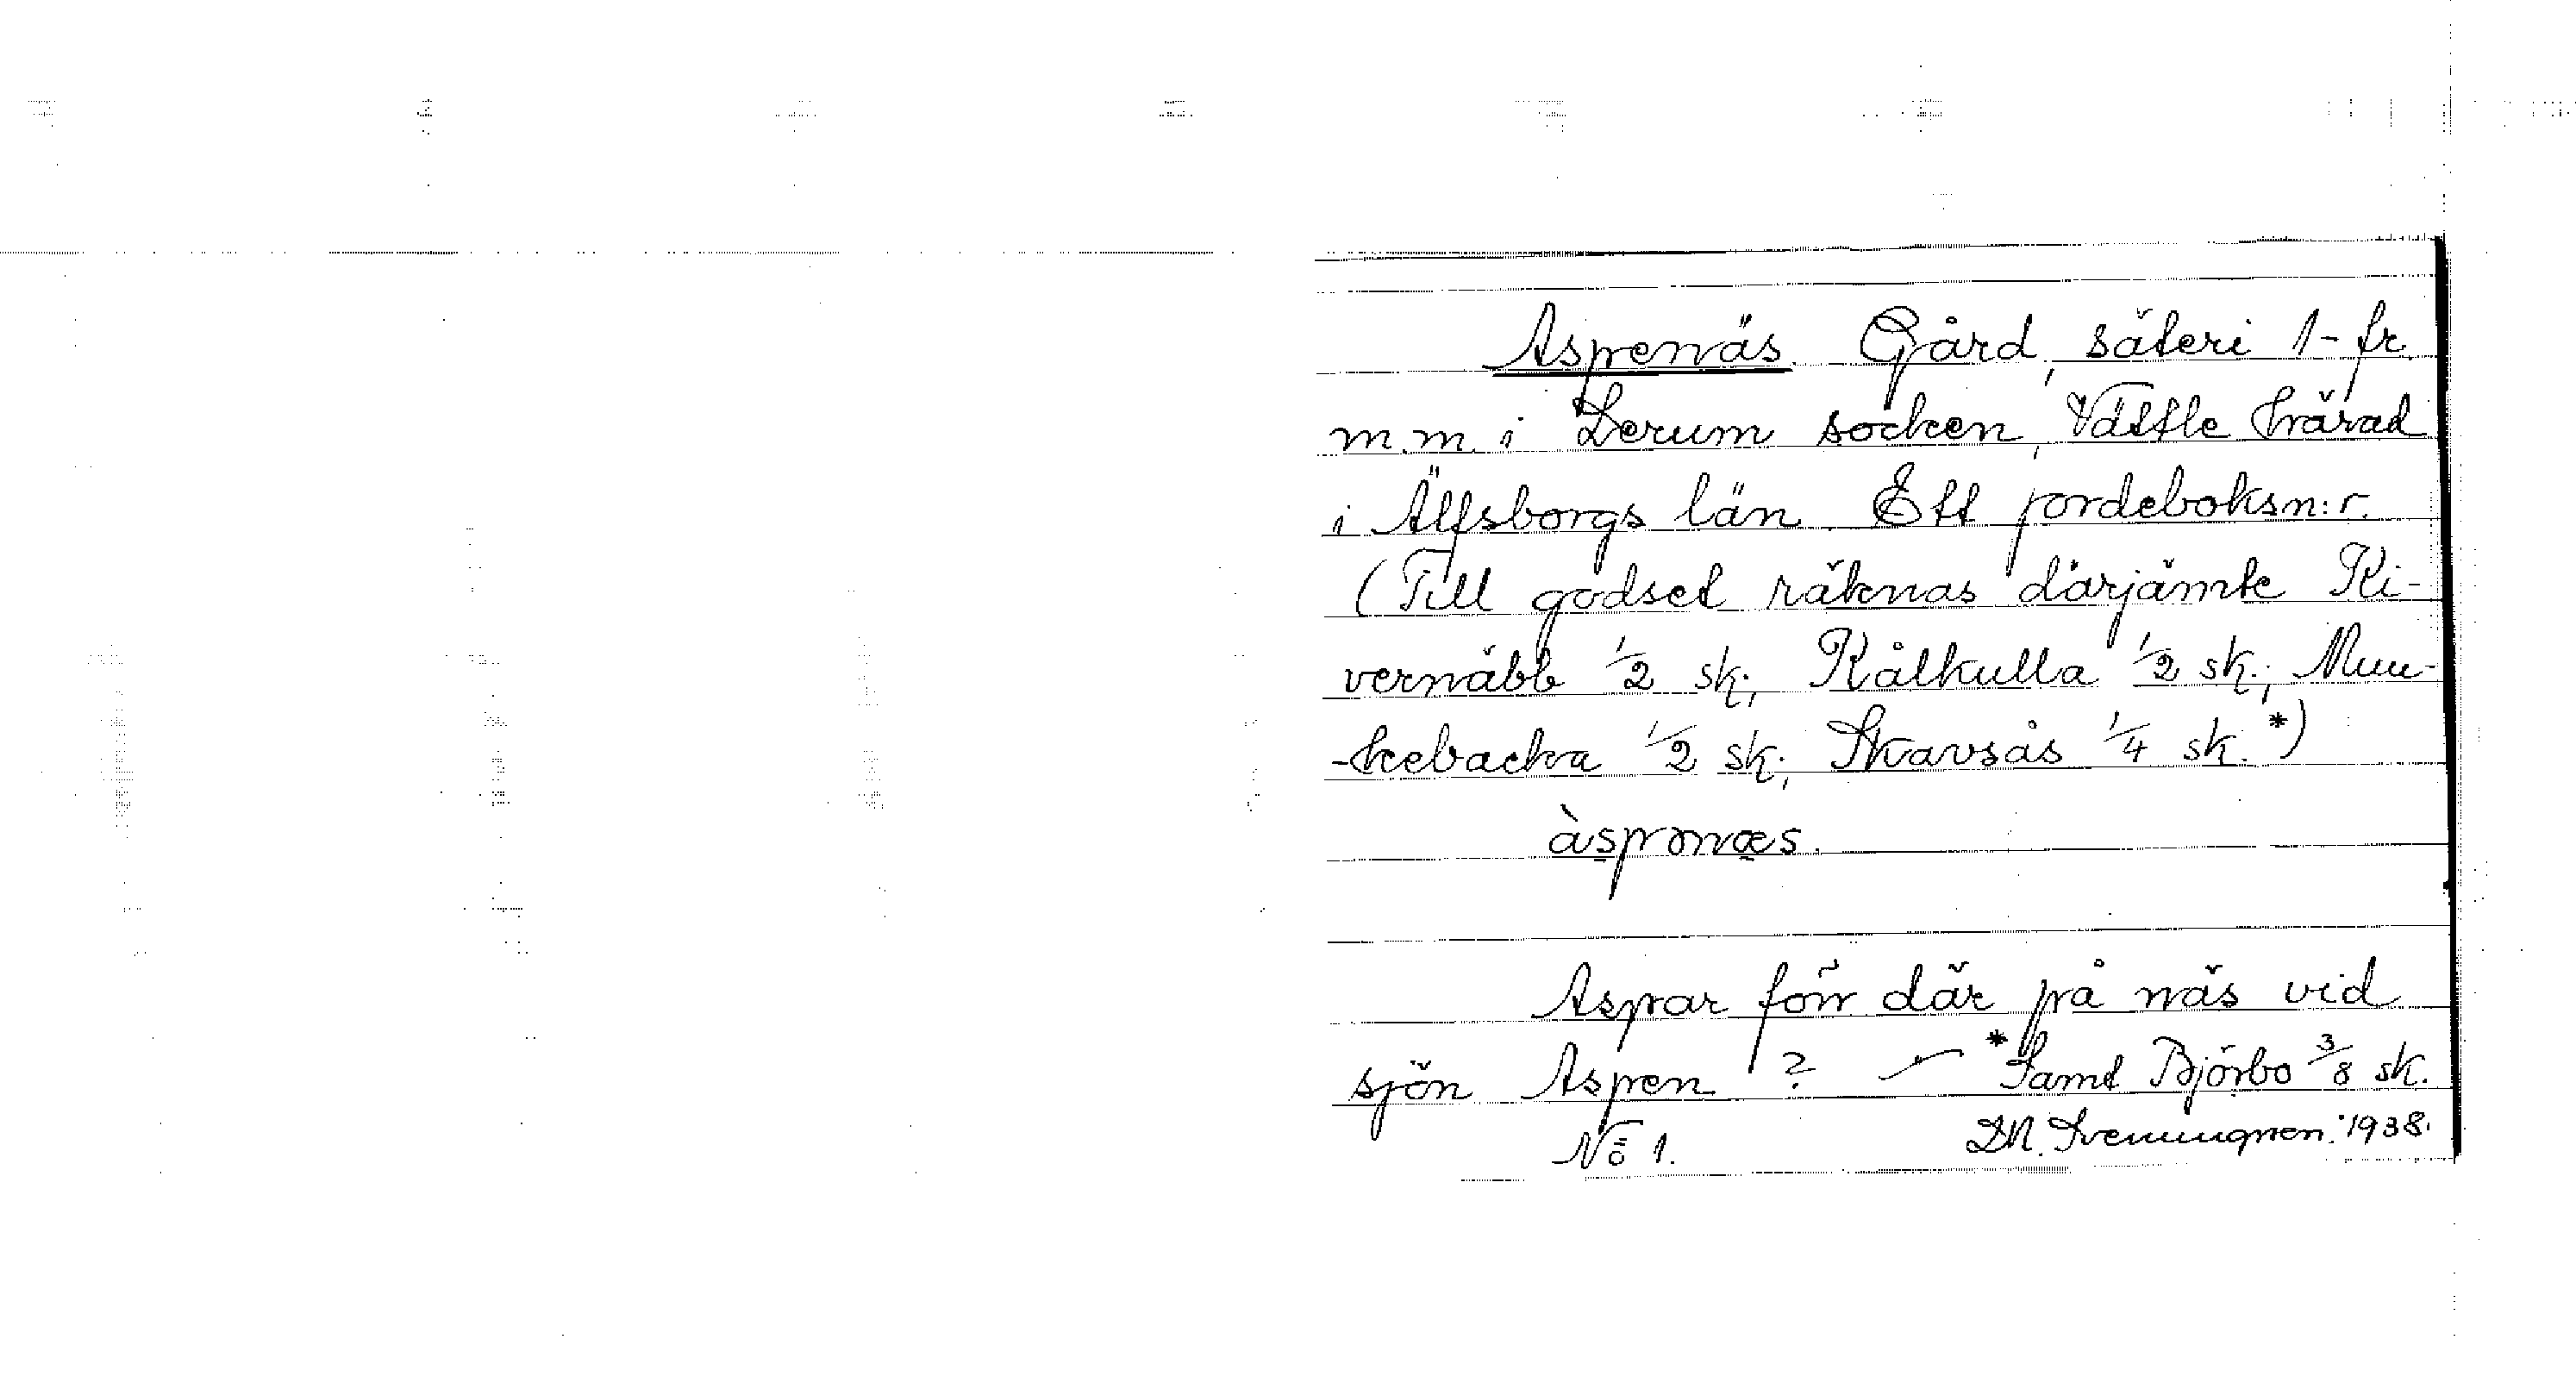 Aspenäs. Gård, säteri 1 - fr.
m.m. i Lerum socken, Vättle härad
i Älfsborgs län. Ett jordeboksn:r.
(Till godset räknas därjämte Ki-
vernäbb 1/2 sk.; Kålkulla 1/2 sk.; Mun-
-kebacka 1/2 sk.; Skavsås 1/4 sk.*)
àspənæs.
Aspar förr där på näs vid
sjön Aspen? — *Samt Björbo 3/8 sk.
No 1. 1938.